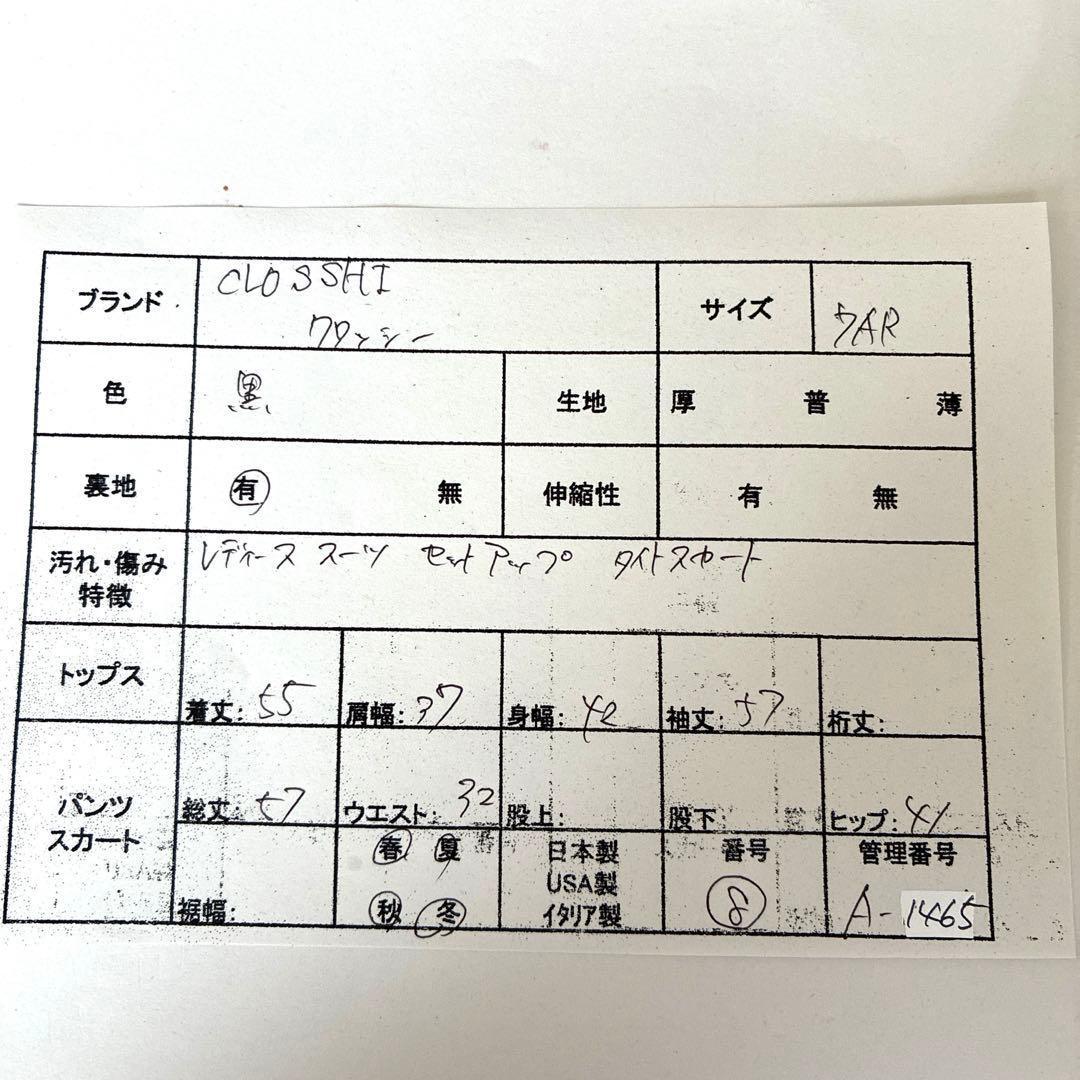 ブランド CLOSSHI サイズ 7AR
クロッシー
色 黒 生地 厚 普 薄
裏地 有 無 伸縮性 有 無
汚れ・傷み レディース スーツ セットアップ タイトスカート
特徴
トップス 着丈: 55 肩幅: 37 身幅: 42 袖丈: 57 裄丈:
パンツ 総丈: 57 ウエスト: 32 股上: 股下: ヒップ: 41
スカート 春 夏 日本製 番号 管理番号
USA製
裾幅: 秋 冬 イタリア製 8 A-1465